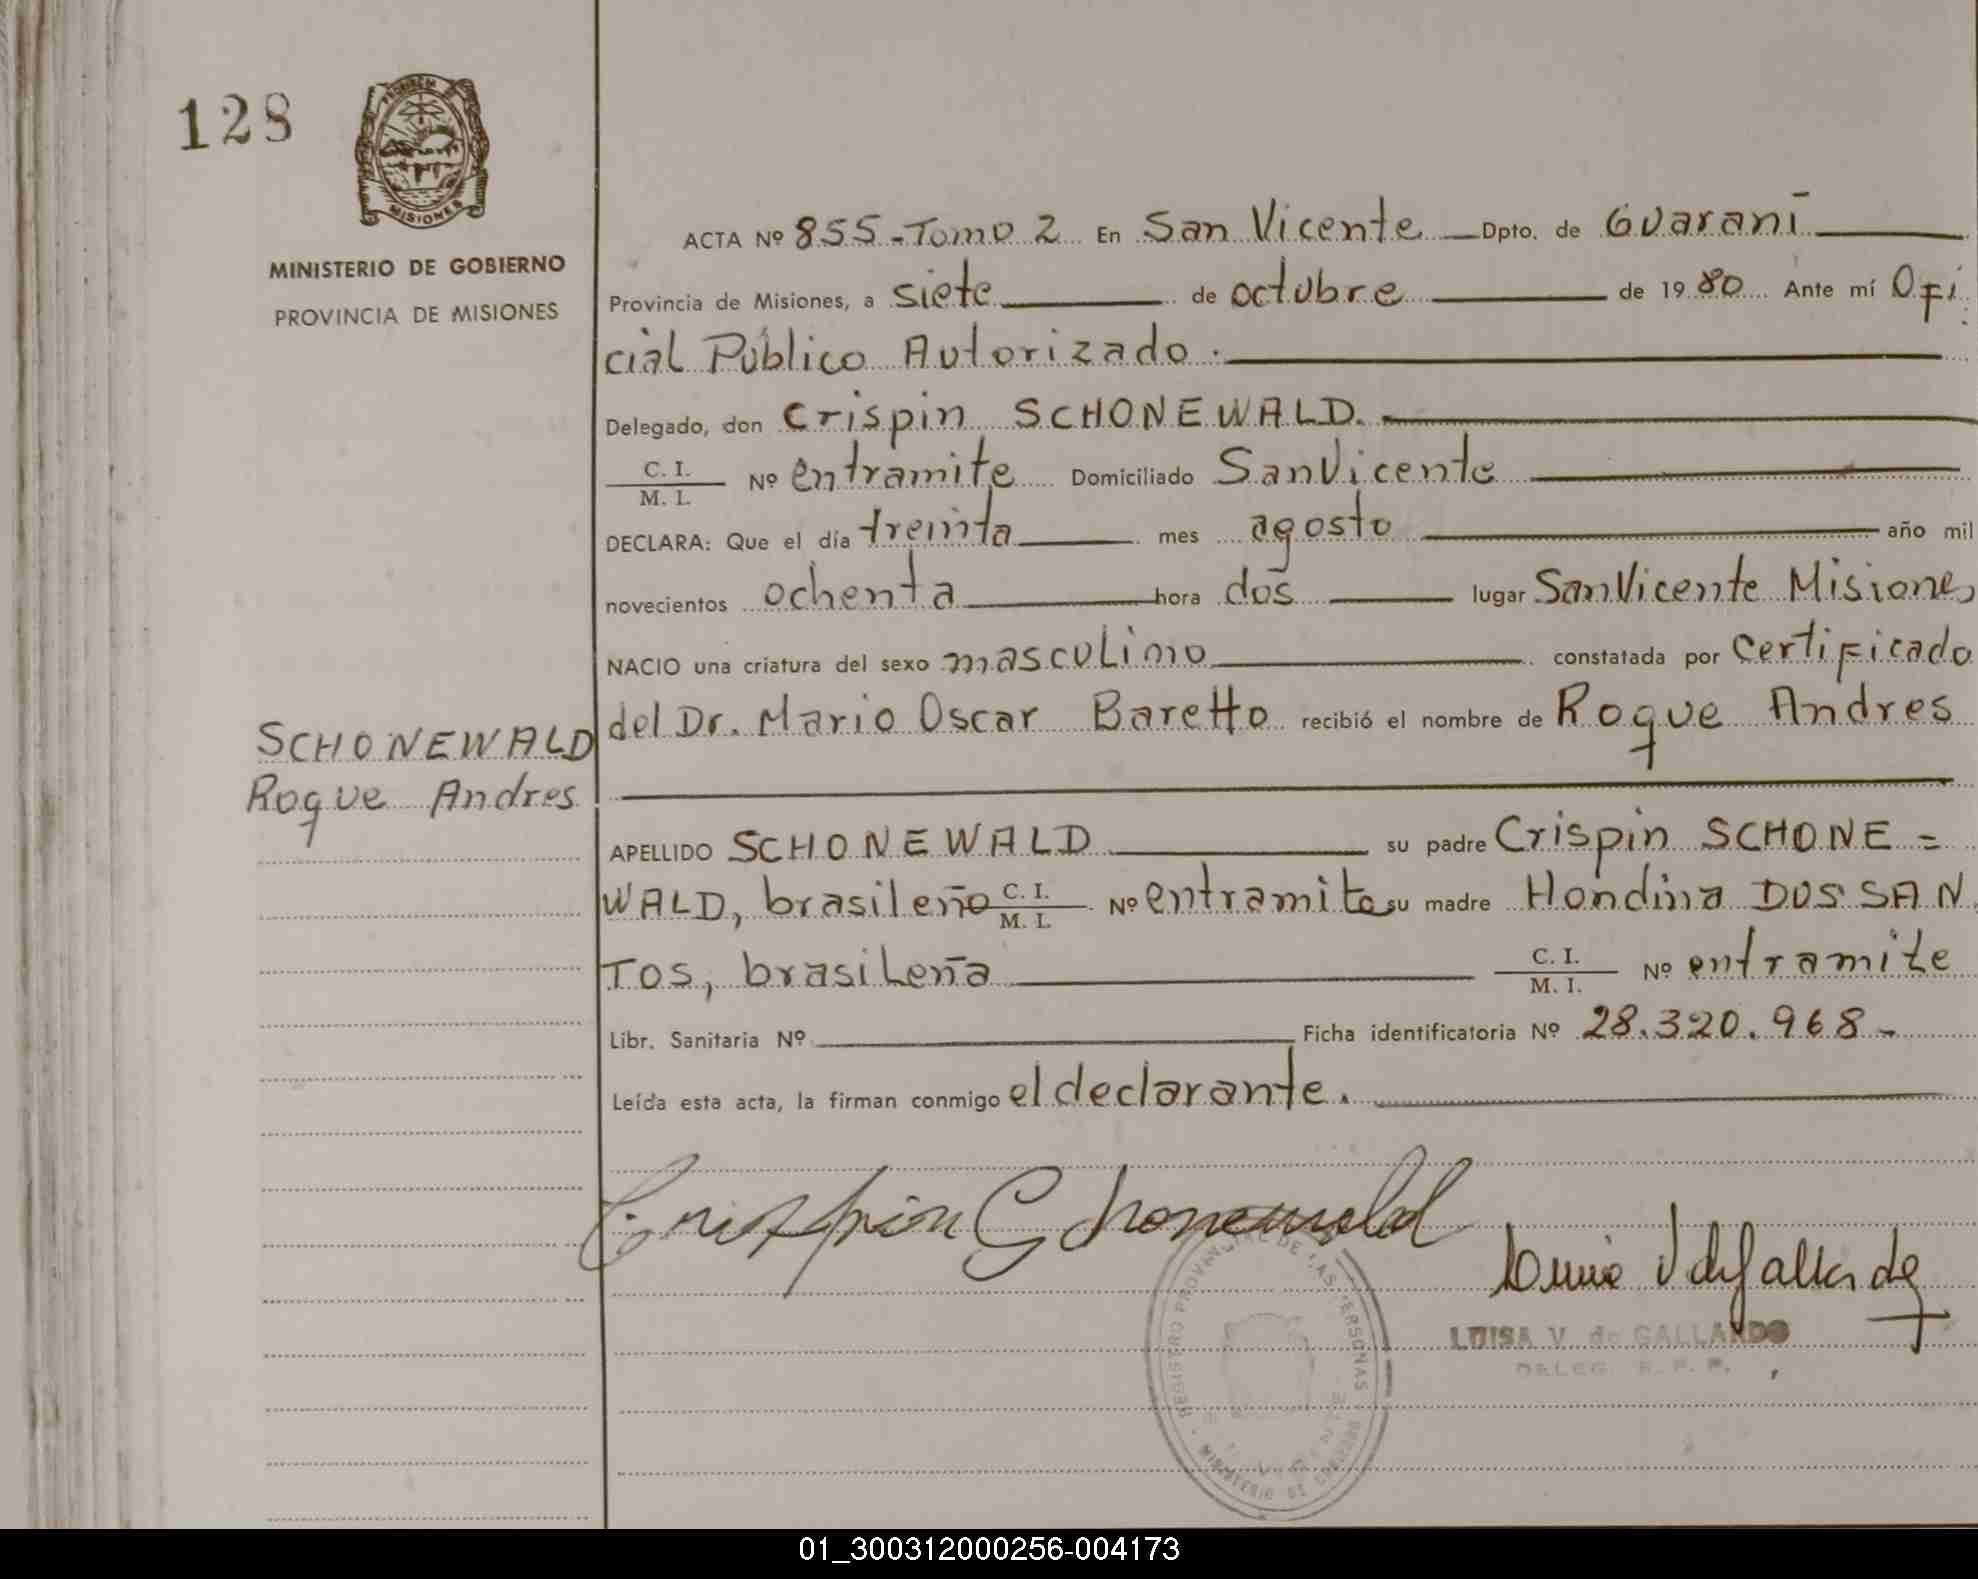 128
PROVINCIA
MISIONES
MINISTERIO DE GOBIERNO
PROVINCIA DE MISIONES
SCHONEWALD
Roque Andres
ACTA Nº 855-Tomo 2 En San Vicente Dpto. de Guaraní
Provincia de Misiones, a siete de octubre de 1980 Ante mí Ofi
cial Público Autorizado.
Delegado, don Crispin SCHONEWALD.
C. I.
M. I. Nº entramite Domiciliado San Vicente
DECLARA: Que el día treinta mes agosto año mil
novecientos ochenta hora dos lugar San Vicente Misiones
NACIO una criatura del sexo masculino constatada por certificado
del Dr. Mario Oscar Baretto recibió el nombre de Roque Andres
APELLIDO SCHONEWALD su padre Crispin SCHONE=
WALD, brasileño C. I. M. I. Nº entramite su madre Hondina DOS SAN
TOS, brasileña C. I. M. I. Nº entramite
Libr. Sanitaria Nº Ficha identificatoria Nº 28.320.968-
Leída esta acta, la firman conmigo el declarante.
Crispin Schonewald
REGISTRO PROVINCIAL DE LAS PERSONAS
MINISTERIO DE GOBIERNO
LUISA V. de GALLARDO
DELEG. R. P. P.
01_300312000256-004173